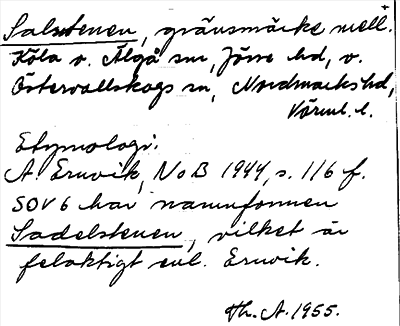 Salstenen, gränsmärke mell.
Köla o. Älgå snr, Jösse hd, o.
Östervallskogs sn, Nordmarks hd,
Värml. l.
Etymologi:
A. Ernvik, NoB 1944, s. 116 f.
SOV 6 har namnformen
Sadelstenen, vilket är
felaktigt enl. Ernvik.
Th. A. 1955.